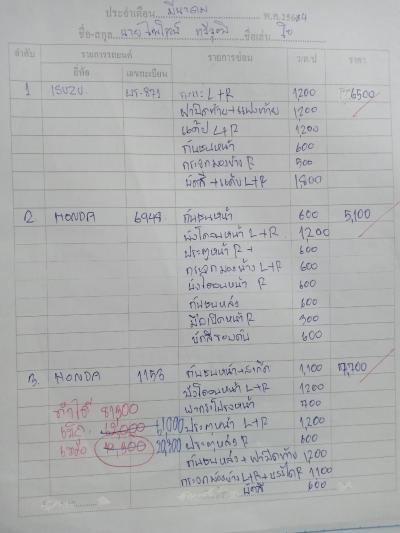 ประจำเดือน มีนาคม พ.ศ.2564
ชื่อ-สกุล นาย ชื่อเล่น
ลำดับ รายการรถยนต์ รายการซ่อม ว.ด.ป ราคา
ยี่ห้อ เลขทะเบียน
1 ISUZU 871 L+R 1,200 6500
ฝาปิดท้าย+แผงท้าย 1,200
แค้ป L+R 1,200
กันชนหน้า 600
กระจกมองข้าง R 500
ขัดสี +แค้บ L+R 1800
2 HONDA 6948 กันชนหน้า 600 5,100
บังโคลนหน้า L+R 1,200
ประตูหน้า R 600
กระจกมองข้าง L+R 600
บังโคลนหน้า R 600
กันชนหลัง 600
มือเปิดหน้า R 300
ขัดสีรอบคัน 600
3. HONDA 1153 กันชนหน้า 1,100 7,700
บังโคลนหน้า L+R 1200
ทำได้ 81,500 ฝากระโปรงหน้า 700
61,000 ประตูหน้า L+R 1,200
20,300 ประตูหลัง R 600
กันชนหลัง + ฝาปิดท้าย 1200
กระจกมองข้าง L+R 1100
ขัดสี 600